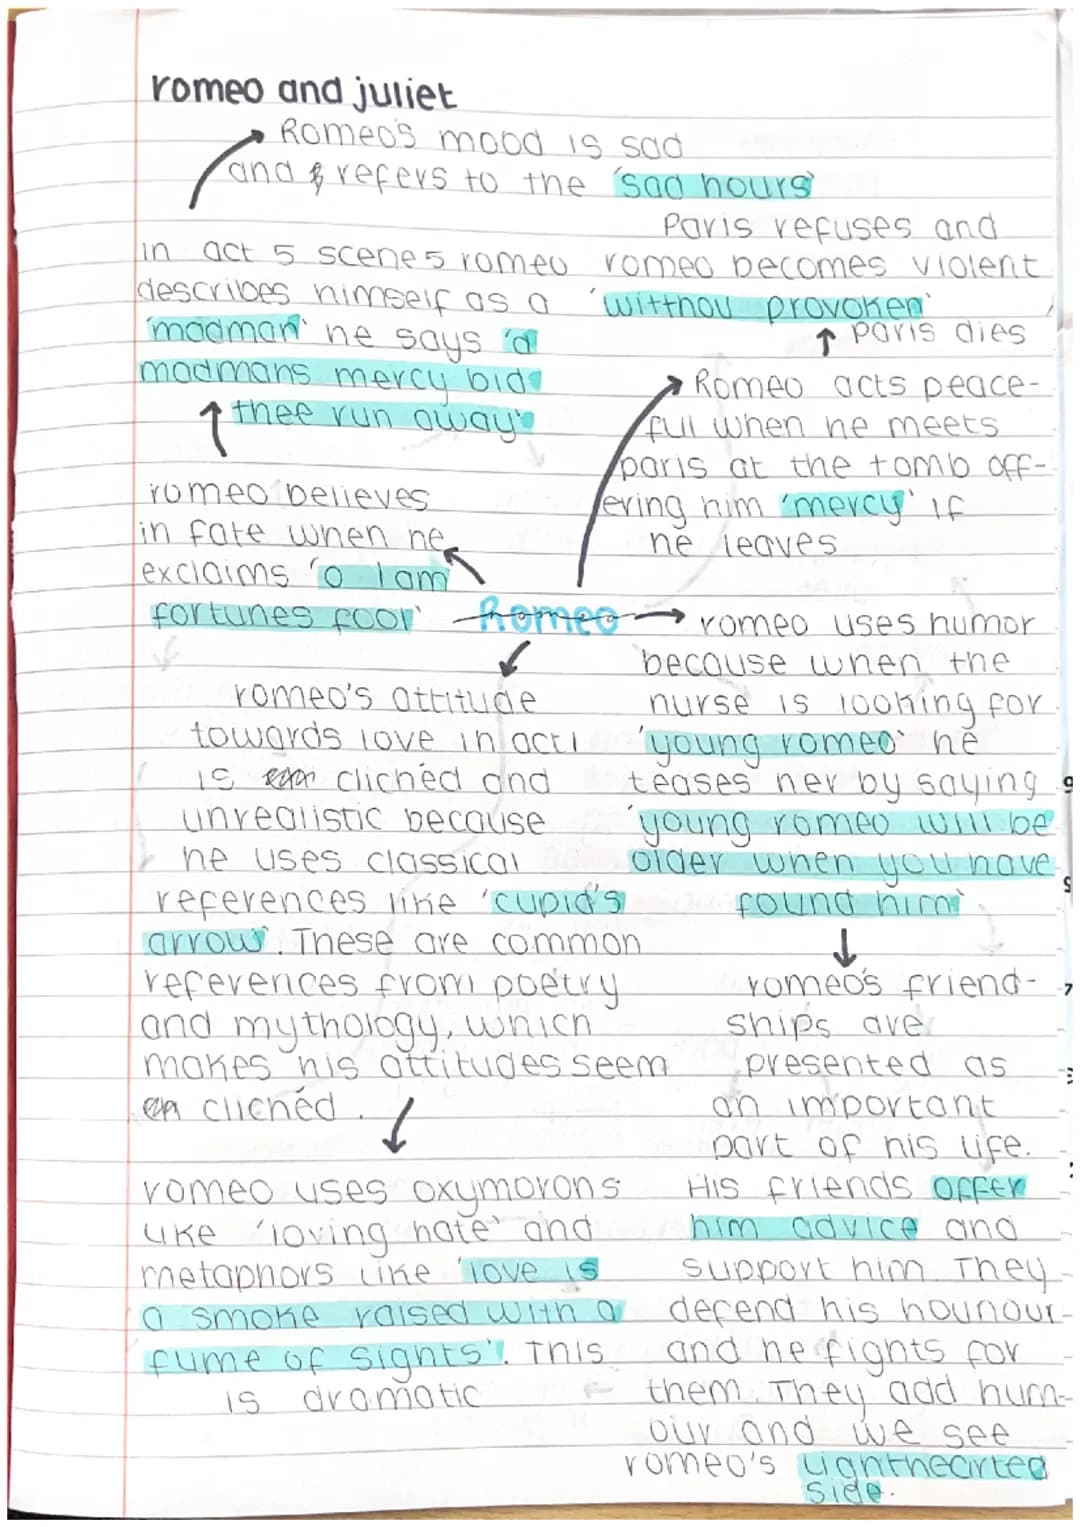 romeo and juliet
Romeo's mood is sad
and refers to the 'sad hours'
in act 5 scene 5 romeo
describes himself as a
'madman' he says 'a
madmans mercy bid
thee run away'
romeo believes
in fate when he
exclaims 'o I am
fortunes fool'
Paris refuses and
romeo becomes violent
'witthou provoken'
paris dies
Romeo acts peace-
ful when he meets
paris at the tomb off-
ering him 'mercy' if
he leaves
Romeo
romeo uses humor
because when the
nurse is looking for
'young romeo' he
teases her by saying
'young romeo will be
older when you have
found him'
romeo's friend-
ships are
presented as
an important
part of his life.
His friends offer
him advice and
support him. They
defend his hounour
and he fights for
them. They add hum-
our and we see
romeo's lighthearted
side.
romeo's attitude
towards love in act 1
is clichéd and
unrealistic because
he uses classical
references like 'cupid's
arrow'. These are common
references from poetry
and mythology, which
makes his attitudes seem
clichéd.
romeo uses oxymorons
like 'loving hate' and
metaphors like 'love is
a smoke raised with a
fume of sights'. This
is dramatic